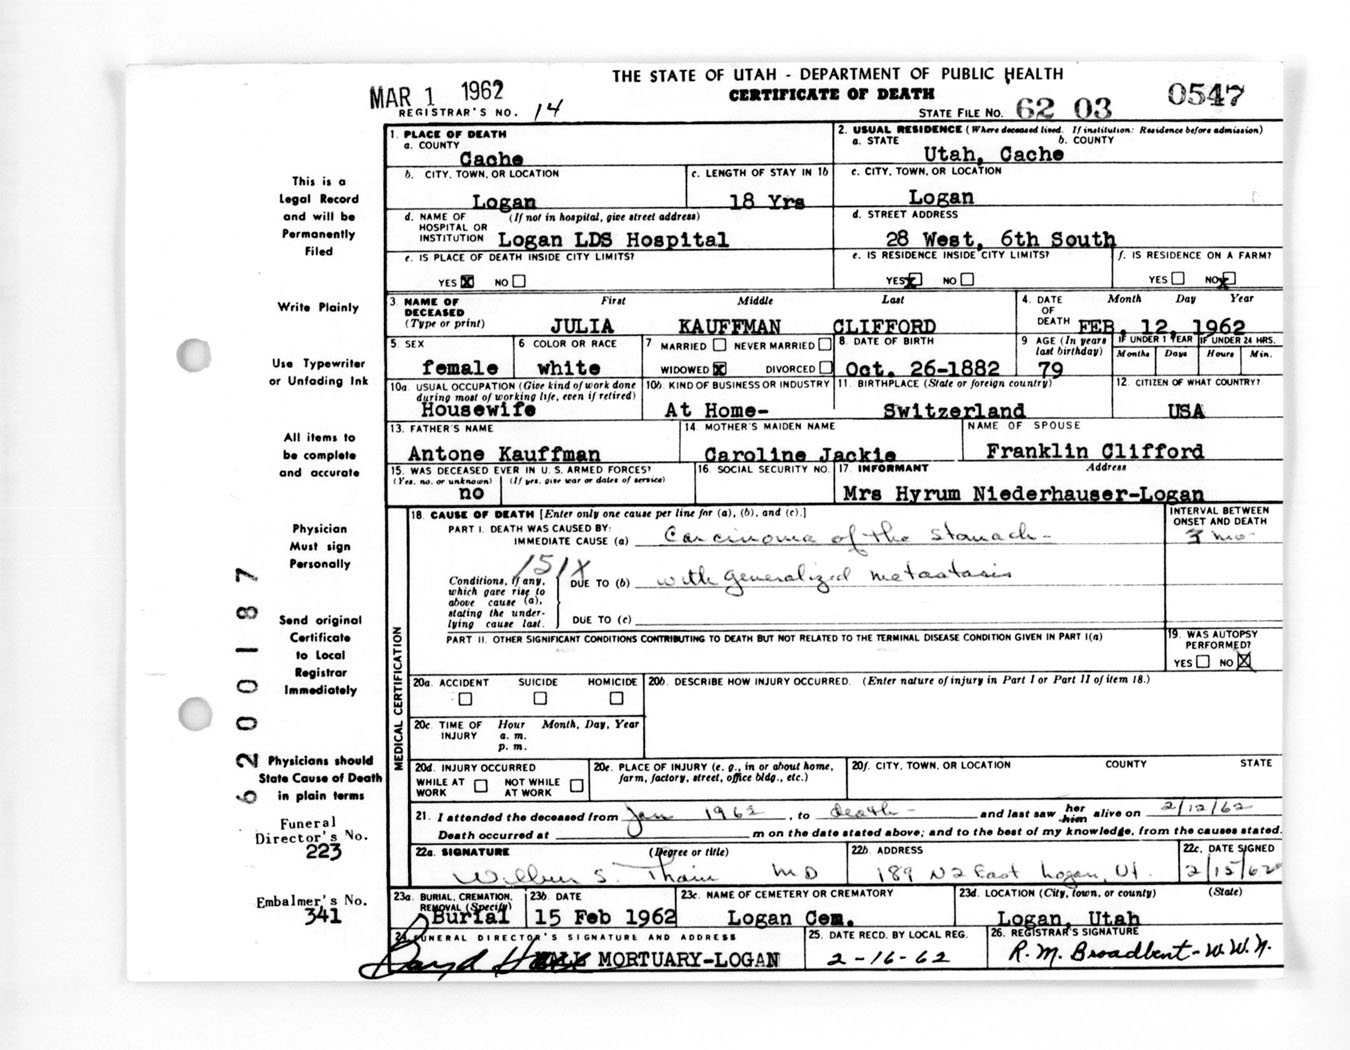 THE STATE OF UTAH - DEPARTMENT OF PUBLIC HEALTH
MAR 1 1962
CERTIFICATE OF DEATH
0547
REGISTRAR'S NO. 14
STATE FILE NO. 62 03
1. PLACE OF DEATH
a. COUNTY
Cache
2. USUAL RESIDENCE (Where deceased lived. If institution: Residence before admission)
a. STATE b. COUNTY
Utah, Cache
b. CITY, TOWN, OR LOCATION
Logan
c. LENGTH OF STAY IN 1b
18 Yrs
c. CITY, TOWN, OR LOCATION
Logan
d. NAME OF HOSPITAL OR INSTITUTION (If not in hospital, give street address)
Logan LDS Hospital
d. STREET ADDRESS
28 West, 6th South
e. IS PLACE OF DEATH INSIDE CITY LIMITS?
YES X NO
e. IS RESIDENCE INSIDE CITY LIMITS?
YES X NO
f. IS RESIDENCE ON A FARM?
YES NO X
3. NAME OF DECEASED (Type or print) First Middle Last
JULIA KAUFFMAN CLIFFORD
4. DATE OF DEATH Month Day Year
FEB, 12, 1962
5. SEX
female
6 COLOR OR RACE
white
7 MARRIED NEVER MARRIED
WIDOWED X DIVORCED
8. DATE OF BIRTH
Oct. 26-1882
9 AGE (In years last birthday)
79
IF UNDER 1 YEAR
Months Days
IF UNDER 24 HRS.
Hours Min.
10a. USUAL OCCUPATION (Give kind of work done during most of working life, even if retired)
Housewife
10b. KIND OF BUSINESS OR INDUSTRY
At Home-
11. BIRTHPLACE (State or foreign country)
Switzerland
12. CITIZEN OF WHAT COUNTRY?
USA
13. FATHER'S NAME
Antone Kauffman
14. MOTHER'S MAIDEN NAME
Caroline Jackie
NAME OF SPOUSE
Franklin Clifford
15. WAS DECEASED EVER IN U. S. ARMED FORCES?
(Yes, no, or unknown) (If yes, give war or dates of service)
no
16. SOCIAL SECURITY NO.
17. INFORMANT Address
Mrs Hyrum Niederhauser-Logan
18. CAUSE OF DEATH [Enter only one cause per line for (a), (b), and (c).]
INTERVAL BETWEEN ONSET AND DEATH
PART I. DEATH WAS CAUSED BY:
IMMEDIATE CAUSE (a) Carcinoma of the Stomach-
3 mo-
151X
Conditions, if any, which gave rise to above cause (a), stating the underlying cause last.
DUE TO (b) with generalized metastasis
DUE TO (c)
PART II. OTHER SIGNIFICANT CONDITIONS CONTRIBUTING TO DEATH BUT NOT RELATED TO THE TERMINAL DISEASE CONDITION GIVEN IN PART I(a)
19. WAS AUTOPSY PERFORMED?
YES NO X
MEDICAL CERTIFICATION
20a. ACCIDENT SUICIDE HOMICIDE
20b. DESCRIBE HOW INJURY OCCURRED. (Enter nature of injury in Part I or Part II of item 18.)
20c. TIME OF INJURY Hour Month, Day, Year
a. m.
p. m.
20d. INJURY OCCURRED
WHILE AT WORK NOT WHILE AT WORK
20e. PLACE OF INJURY (e. g., in or about home, farm, factory, street, office bldg., etc.)
20f. CITY, TOWN, OR LOCATION COUNTY STATE
21. I attended the deceased from Jan 1962, to death- and last saw her him alive on 2/12/62
Death occurred at m on the date stated above; and to the best of my knowledge, from the causes stated.
22a. SIGNATURE (Degree or title)
Wilbur S. Thain MD
22b. ADDRESS
189 N 2 East Logan, Ut.
22c. DATE SIGNED
2/15/62
23a. BURIAL, CREMATION, REMOVAL (Specify)
Burial
23b. DATE
15 Feb 1962
23c. NAME OF CEMETERY OR CREMATORY
Logan Cem.
23d. LOCATION (City, town, or county) (State)
Logan, Utah
24. FUNERAL DIRECTOR'S SIGNATURE AND ADDRESS
MORTUARY-LOGAN
25. DATE RECD. BY LOCAL REG.
2-16-62
26. REGISTRAR'S SIGNATURE
R. M. Broadbent-W.W.N.
This is a
Legal Record
and will be
Permanently
Filed
Write Plainly
Use Typewriter
or Unfading Ink
All items to
be complete
and accurate
Physician
Must sign
Personally
Send original
Certificate
to Local
Registrar
Immediately
Physicians should
State Cause of Death
in plain terms
Funeral
Director's No.
223
Embalmer's No.
341
6200187